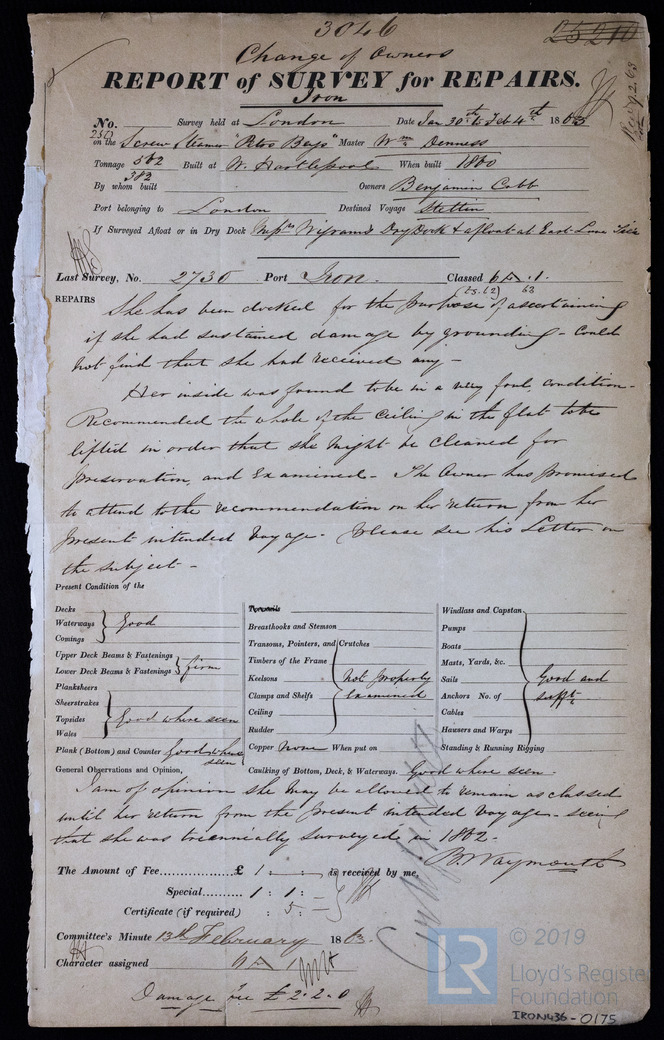 3046
25210
Change of Owners
REPORT of SURVEY for REPAIRS.
Iron
No. Survey held at London Date Jan 30th to Feb 4th 1863
on the Screw Steamer "Peto's Bays" Master Wm Denness
Tonnage 502 Built at W. Hartlepool When built 1860
382
By whom built Owners Benjamin Cobb
Port belonging to London Destined Voyage Stettin
If Surveyed Afloat or in Dry Dock Messrs Wigrams Dry Dock & afloat at East Lane Tier
Last Survey, No. 2730 Port Iron. Classed 6 A. 1.
REPAIRS She has been docked for the purpose of ascertaining
if she had sustained damage by grounding - Could
not find that she had received any -
Her inside was found to be in a very foul condition -
Recommended the whole of the Ceiling in the flat to be
lifted in order that she might be cleaned for
preservation, and Examined - The Owner has promised
to attend to the recommendation on her return from her
present intended Voyage - Please see his Letter on
the subject -
Present Condition of the
Decks
Waterways Good
Comings
Upper Deck Beams & Fastenings
Lower Deck Beams & Fastenings firm
Planksheers
Sheerstrakes
Topsides Good where seen
Wales
Plank (Bottom) and Counter Good where seen
Treenails
Breasthooks and Stemson
Transoms, Pointers, and Crutches
Timbers of the Frame
Keelsons not properly
Clamps and Shelfs Examined
Ceiling
Rudder
Copper none When put on
Windlass and Capstan
Pumps
Boats
Masts, Yards, &c.
Sails Good and
Anchors No. of sufft
Cables
Hausers and Warps
Standing & Running Rigging
General Observations and Opinion, Caulking of Bottom, Deck, & Waterways. Good where seen.
I am of opinion she may be allowed to remain as classed
until her return from the present intended Voyage - seeing
that she was triennially surveyed in 1862 -
B. Waymouth
The Amount of Fee £ 1 : is received by me,
Special 1 : 1 : -
Certificate (if required) : 5 : -
Committee's Minute 13th February 1863.
Character assigned 6 A 1
Damage fee £ 2.2.0
LR © 2019
Lloyd's Register
Foundation
IRON436-0175